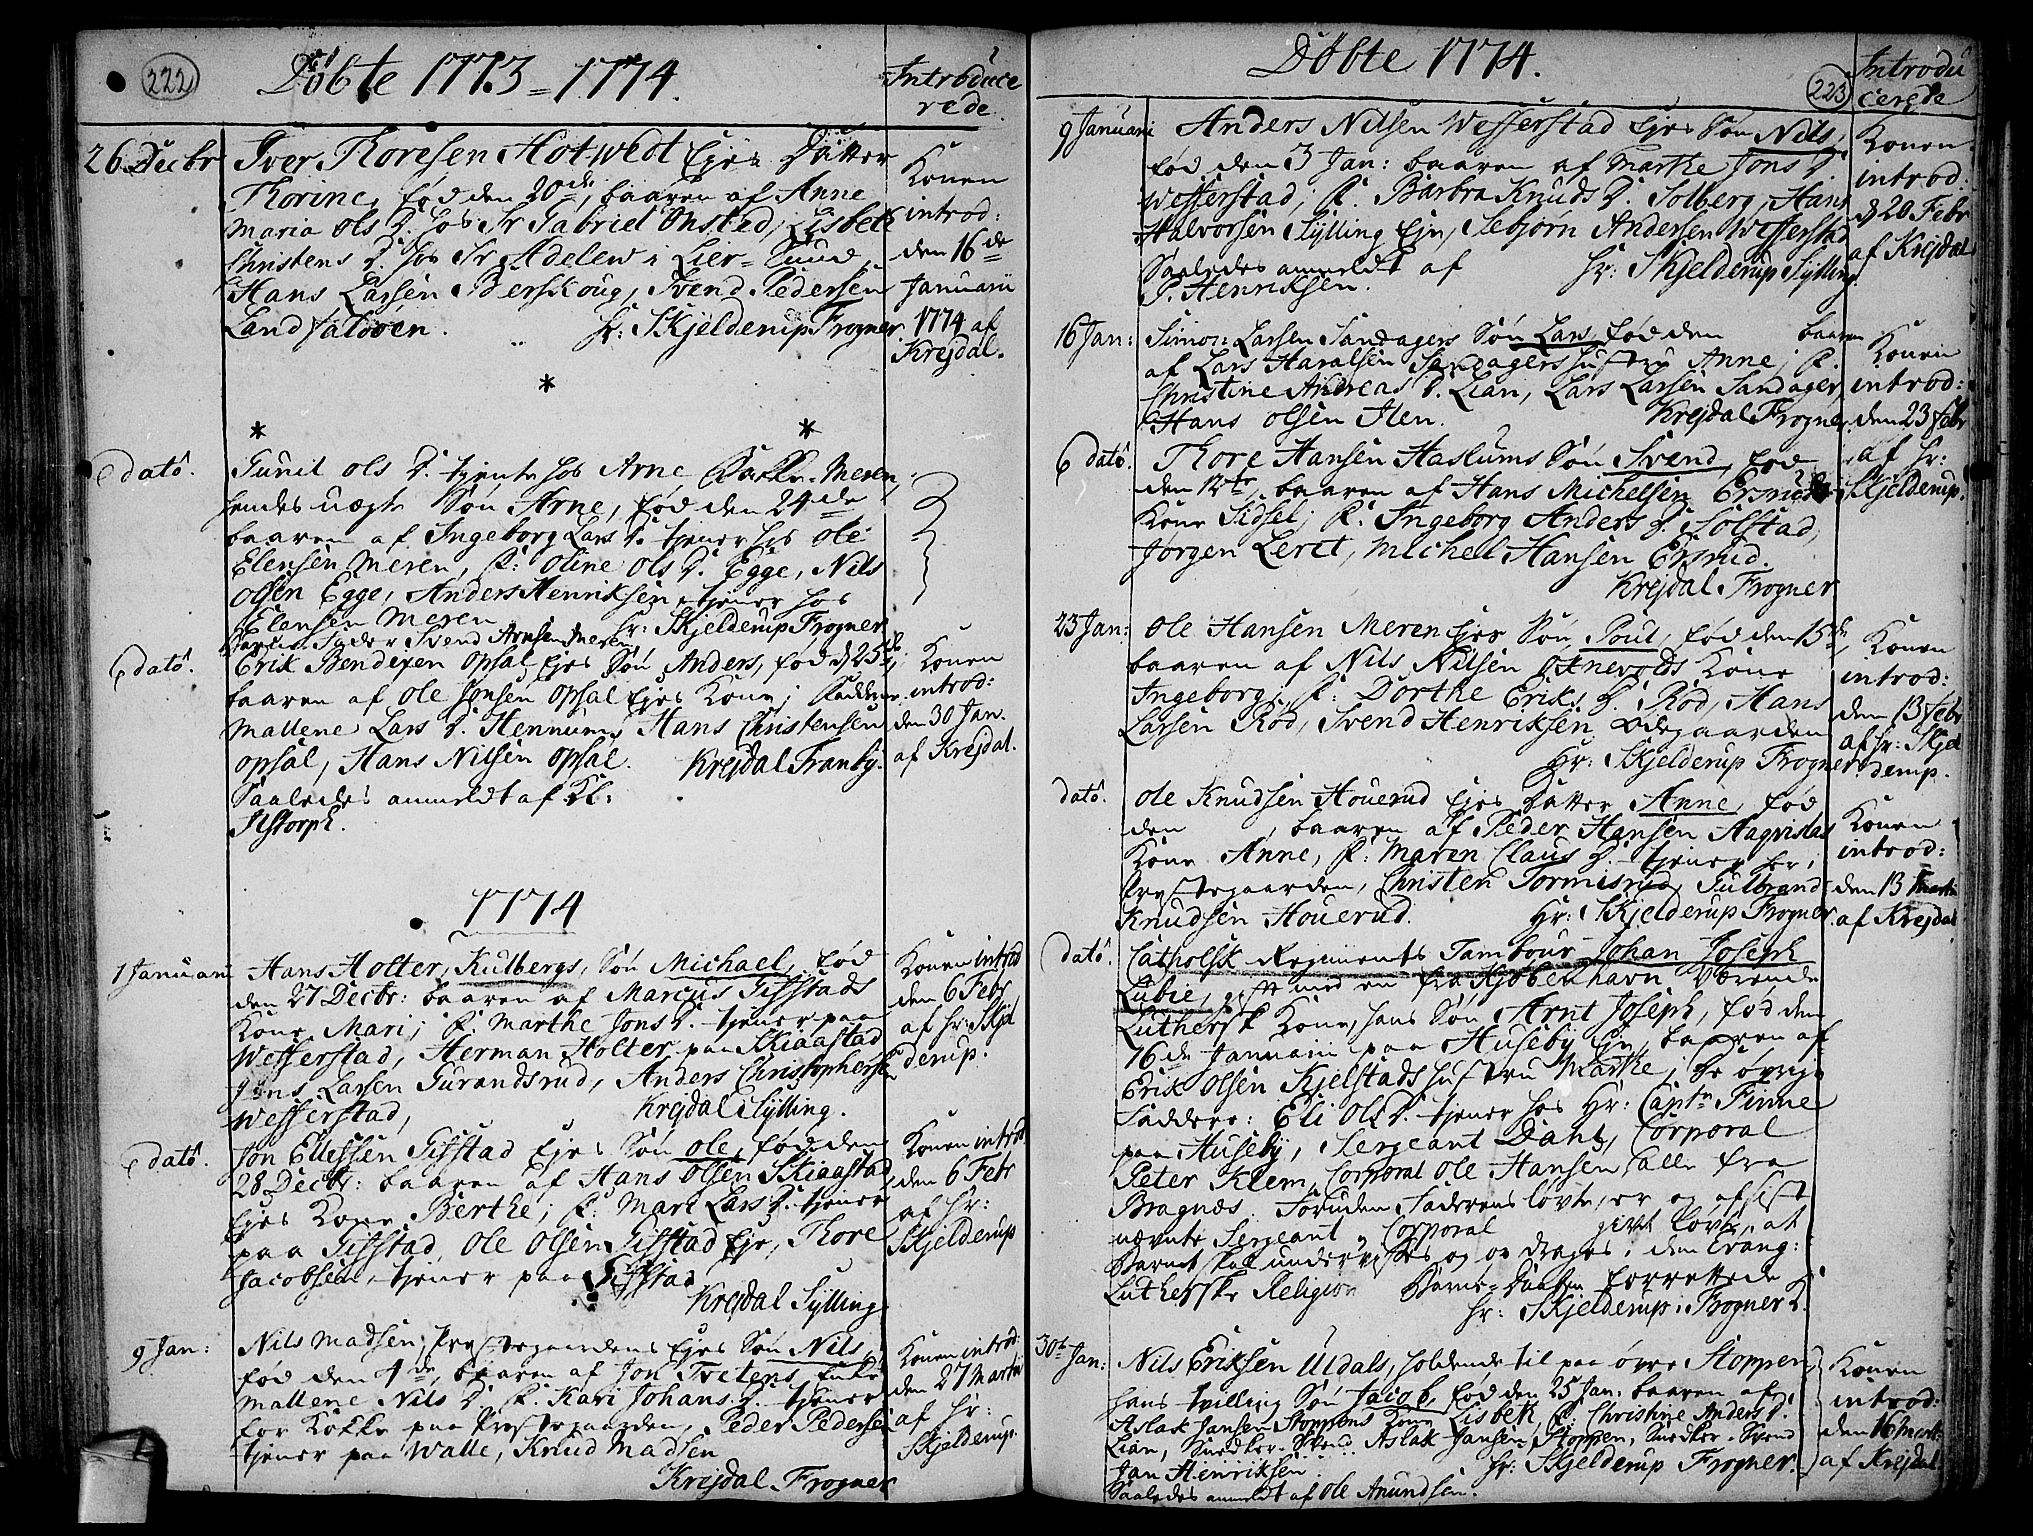 222
Døbte 1773 = 1774.
Introduce
rede.
26 Decbr
Iver Thoresen Hotwedt Ejer Datter
Thorine, fød den 20de, baaren af Anne
Maria Ols D. hos Sr Gabriel Onstad, Lisbeth
Christens D. hos Sr Adelew i Lier-Sund,
Hans Larsen Berskoug, Svend Pedersen
Landfaløen. Hr: Skjelderup Frogner
Konen
introd:
den 16de
Januarii
1774 af
Krejdal.
*
* *
dato.
Gunil Ols D. tjente hos Arne Meren,
hendes uægte Søn Arne, fød den 24de
baaren af Ingeborg Lars D. tjener hos Ole
Elensen Meren, F: Oline Ols D. Egge, Nils
Olsen Egge, Anders Henriksen tjener hos
Elensen Meren Hr: Skjelderup Frogner
Svend Arnesen Meren
dato.
Erik Bendixen Opsal Ejes Søn Anders, fød d 25de
baaren af Ole Jonsen Opsal Ejes Kone; Faddere
Mallene Lars D. Hennum, Hans Christensen
Opsal, Hans Nilsen Opsal. Krejdal Tranby.
Saaledes anmeldt af Kl:
Ilstorph.
Konen
introd:
den 30 Jan.
af Krejdal.
1774
1 Januarii
Hans Holter, Kulbergs, Søn Michael, fød
den 27 Decbr: baaren af Marcus Gifstads
Kone Mari; F: Marthe Jons D. tjener paa
Wefferstad, Herman Holter paa Skiaastad
Jens Larsen Gurandsrud, Anders Christophersen
Wefferstad, Krejdal Sylling.
Konen introd
den 6 Febr
af Hr: Skjel
derup.
dato.
Jon Ellessen Gifstad Ejes Søn Ole, fød den
28 Decbr: baaren af Hans Olsen Skiaastad
Ejes Kone Berthe; F: Mari Lars D. tjener
paa Gifstad, Ole Olsen Gifstad Eje, Thore
Jacobsen, tjener paa Gifstad
Krejdal Sylling
Konen introd
den 6 Febr
af Hr:
Skjelderup
9 Jan:
Nils Madsen Præstegaardens Ejes Søn Nils,
fød den 4de, baaren af Jon Tvetens Enke
Mallene Nils D. F. Kari Johans D. tjener
for Kokke paa Præstegaarden, Peder Pedersen
tjener paa Walle, Knud Madsen
Krejdal Frogner
Konen introd:
den 27 Martii
af Hr:
Skjelderup.
Døbte 1774.
223
Introdu
cerede
9 Januarii
Anders Nilsen Wefferstad Ejes Søn Nils,
fød den 3 Jan: baaren af Marthe Jons D.
Wefferstad; F. Barbra Knuds D. Solberg, Hans
Halvorsen Sylling Eje, Sebjørn Andersen Wefferstad
Saaledes anmeldt af Hr: Skjelderup Sylling.
P. Henriksen.
Konen
introd.
d 20 Febr
af Krejdal
16 Jan:
Simon Larsen Sandagers Søn Lars fød den baaren
af Lars Haralsen Sandagers Hustru Anne; F.
Christine Andreas D. Lian, Lars Larsen Sandager,
Hans Olsen Ilen. Krejdal Frogner
Konen
introd:
den 23 Febr
af Hr:
Skjelderup.
dato.
Thore Hansen Haslums Søn Svend, fød
den 12te, baaren af Hans Michelsen Ersrud
Kone Sidsel; F. Ingeborg Anders D. Solstad,
Jørgen Leret, Michel Hansen Ersrud.
Krejdal Frogner
23 Jan:
Ole Hansen Meren Ejes Søn Poul, fød den 15de,
baaren af Nils Nilsen Kone
Ingeborg; F: Dorthe Eriks D. Rød, Hans
Larsen Rød, Svend Henriksen Ødegaarden
Hr: Skjelderup Frogner
Konen
introd:
den 13 Febr
af Hr: Skjel
derup.
dato.
Ole Knudsen Houerud Ejes Datter Anne, fød
den , baaren af Peder Hansen
Kone Anne, F: Maren Claus D. tjener her i
Præstegaarden, Christen Tormisrud, Gulbrand
Knudsen Houerud. Hr: Skjelderup Frogner
Konen
introd:
den 13 Martii
af Krejdal
dato.
Catholsk Regiments Tambour Johan Joseph
Lubie, gift med en fra Kjøbenhavn værende
Luthersk Kone, hans Søn Arnt Joseph, fød den
16de Januarii paa Huseby Eje, baaren af
Erik Olsen Kjelstads Hustru Marthe; De øvrige
Faddere: Eli Ols D. tjener hos Hr: Captn Finne
paa Huseby, Sergeant Dahl, Corporal
Peter Klem, Corporal Ole Hansen, alle fra
Bragnæs. Foruden Faderens løvte, er og af sist
nævnte Sergeant og Corporal givet løvte, at
Barnet skal undervises og opdrages i den Evang:
Lutherske Religion Barne-Daaben forrettede
Hr: Skjelderup i Frogner K.
30te Jan:
Nils Eriksen Uldals, holdende til paa øvre Stoppen,
hans tvilling Søn Jacob, fød den 25 Jan: baaren af
Aslak Jansen Stoppens Kone Lisbeth, F: Christine Anders D.
Lian, Snedker-Svend Aslak Jansen Stoppen, Snedker-Svend
Jan Henriksen. Hr: Skjelderup Frogner.
Saaledes anmeldt af Ole Amundsen.
Konen
introd:
den 16 Martii
af Krejdal